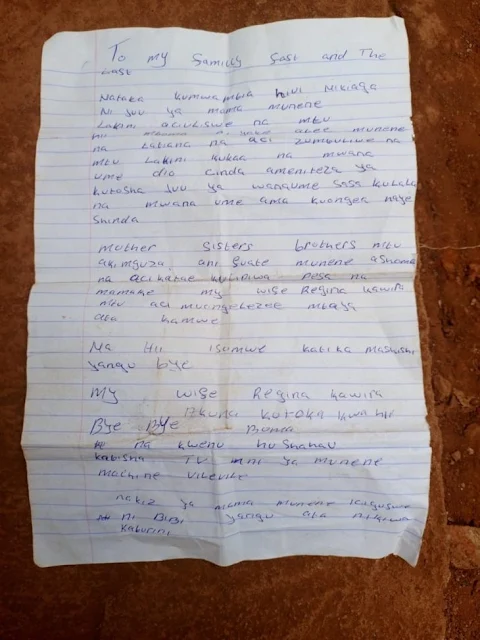 To my family fast and The
Last
Nataka kumwambia hivi nikiaga
Ni juu ya mama munene
Lakini acivkiswe na mtu
munene
na tabiana na aci zumbuliwe na
mtu Lakini kukaa na mwana
ume dio cinda ameniteza ya
kutosha juu ya wanaume sasa kulala
na mwana ume ama kuongea naye
shinda
mother sisters brothers mtu
akimguza ani fuate munene ashoma
na acikatae kulipiwa Pesa na
mamake my wife Regina kawira
mtu aci mungelezee mbaya
ata kamwe
Na Hii isomwe katika mashishi
yangu bye
my wife Regina kawira
Bkuna kutoka kwa hii
Bye Bye Boma
na kwenu husahau
kabisha TV ni ya munene
machine vilevile
nakiz ya mama munene isiguswe
ni Bibi yangu ata nikiwa
kaburini